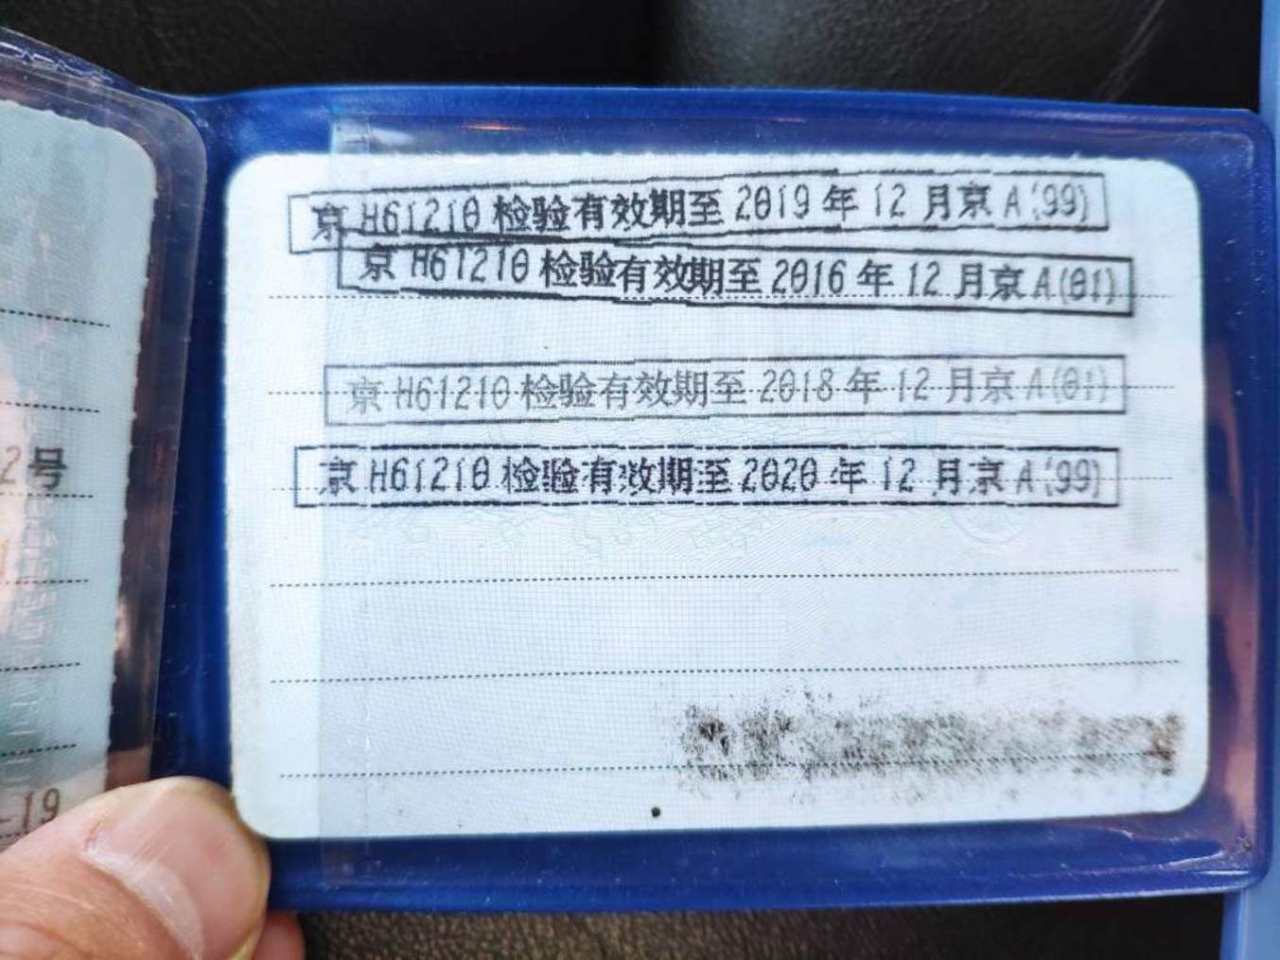 京H61210检验有效期至2019年12月京A(99)
京H61210检验有效期至2016年12月京A(01)
京H61210检验有效期至2018年12月京A(01)
京H61210检验有效期至2020年12月京A(99)
2号
-19